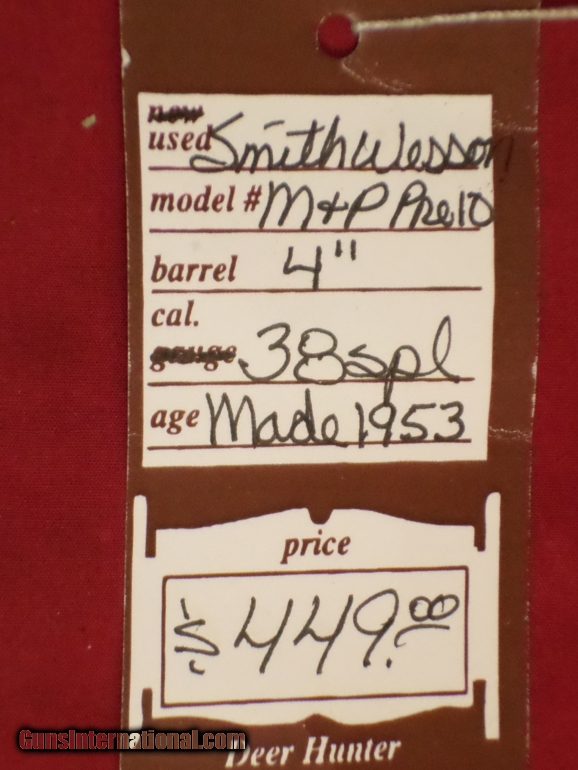 new
used Smith Wesson
model # M+P Pre 10
barrel 4"
cal.
gauge .38 spl
age Made 1953
price
$449.00
Deer Hunter
GunsInternational.com